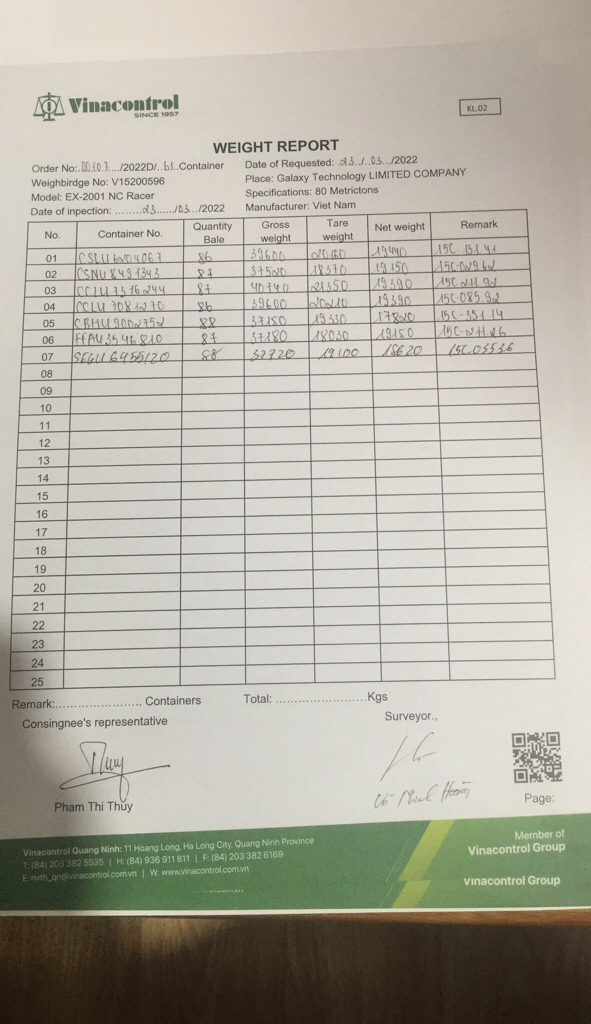 Vinacontrol
SINCE 1957
KL.02
WEIGHT REPORT
Order No: 00107.../2022D/..bl..Container
Date of Requested: 23../..03.../2022
Weighbirdge No: V15200596
Place: Galaxy Technology LIMITED COMPANY
Model: EX-2001 NC Racer
Specifications: 80 Metrictons
Date of inpection: ........23....../03.../2022
Manufacturer: Viet Nam
No. Container No. Quantity Bale Gross weight Tare weight Net weight Remark
01 CSLU6204067 86 39600 20160 19440 15C-151.41
02 CSNU8491343 87 37520 18370 19150 15C-029.62
03 CCLU7376244 87 40740 21350 19390 15C-211.92
04 CCLU7081270 86 39600 20210 19390 15C-085.92
05 CBHU9002752 88 37150 19330 17820 15C-351.14
06 FFAU3546810 87 37180 18030 19150 15C-211.26
07 SEGU6955120 88 37720 19100 18620 15C.05536
08
09
10
11
12
13
14
15
16
17
18
19
20
21
22
23
24
25
Remark:....................... Containers Total: ........................Kgs
Consingnee's representative
Surveyor.,
Thuy
Pham Thi Thuy
Page:
Vinacontrol Quang Ninh: 11 Hoang Long, Ha Long City, Quang Ninh Province
T: (84) 203 382 5535 | H: (84) 936 911 811 | F: (84) 203 382 6169
E: nvth_qn@vinacontrol.com.vn | W: www.vinacontrol.com.vn
Member of
Vinacontrol Group
Vinacontrol Group